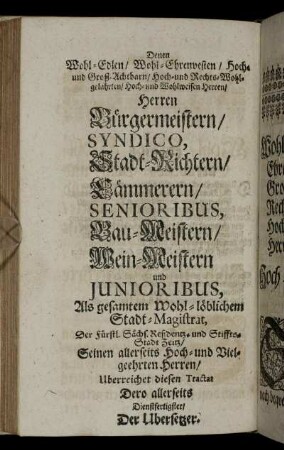 Denen
Wohl-Edlen/ Wohl-Ehrenvesten/ Hoch-
und Groß-Achtbarn/ Hoch-und Rechts-Wohl-
gelahrten/ Hoch-und Wohlweisen Herren/
Herren
Bürgermeistern/
SYNDICO,
Stadt-Richtern/
Cämmerern/
SENIORIBUS,
Bau-Meistern/
Wein-Meistern
und
JUNIORIBUS,
Als gesamtem Wohl-löblichem
Stadt-Magistrat,
Der Fürstl. Sächs. Residentz-und Stiffts-
Stadt Zeitz/
Seinen allerseits Hoch-und Viel-
geehrten Herren/
Uberreichet diesen Tractat
Dero allerseits
Dienstfertigster/
Der Ubersetzer.